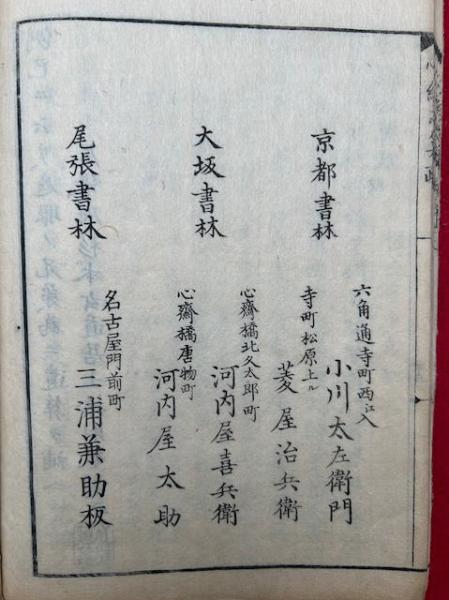 京都書林
六角通寺町西江入
小川太左衛門
寺町松原上ル
菱屋治兵衛
大坂書林
心齋橋北久太郎町
河内屋喜兵衛
心齋橋唐物町
河内屋太助
尾張書林
名古屋門前町
三浦兼助板